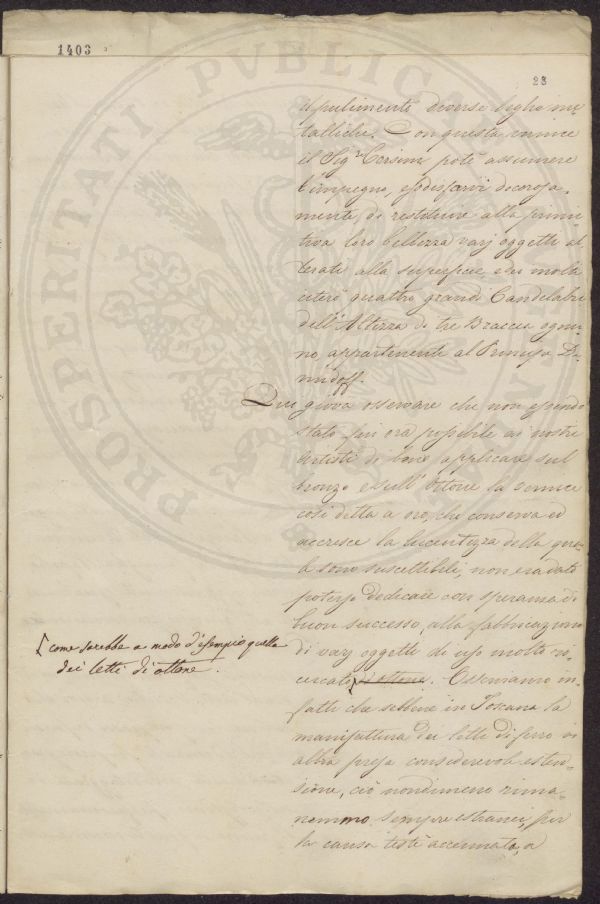 1403
23
PROSPERITATI PVBLICAE
il pulimento diverse leghe me-
talliche. Con questa vernice
il Sigr. Corsini potè assumere
l'impegno, e sodisfarvi decorosa-
mente, di restituire alla primi-
tiva loro bellezza varj oggetti al-
terati alla superficie, e di molti
citerò quattro grandi Candelabri
dell'Altezza di tre Braccia ogniu-
no appartenenti al Principe De-
midoff.
Qui giova osservare che non essendo
stato fin ora possibile ai nostri
Artisti di bene applicare sul
bronzo e sull'Ottone la vernice
così detta a oro, che conserva ed
accresce la lucentezza della qua-
le sono suscettibili, non era dato
potersi dedicare con speranza di
buon successo, alla fabbricazione
di varj oggetti di uso molto ri-
cercato di ottone. Osserviamo in-
fatti che sebbene in Toscana la
manifattura dei letti di ferro ab-
bia preso considerevole esten-
sione, ciò nondimeno rima-
nemmo sempre estranei, per
la causa testè accennata, a
[come sarebbe a modo d'esempio quella
dei letti di ottone.